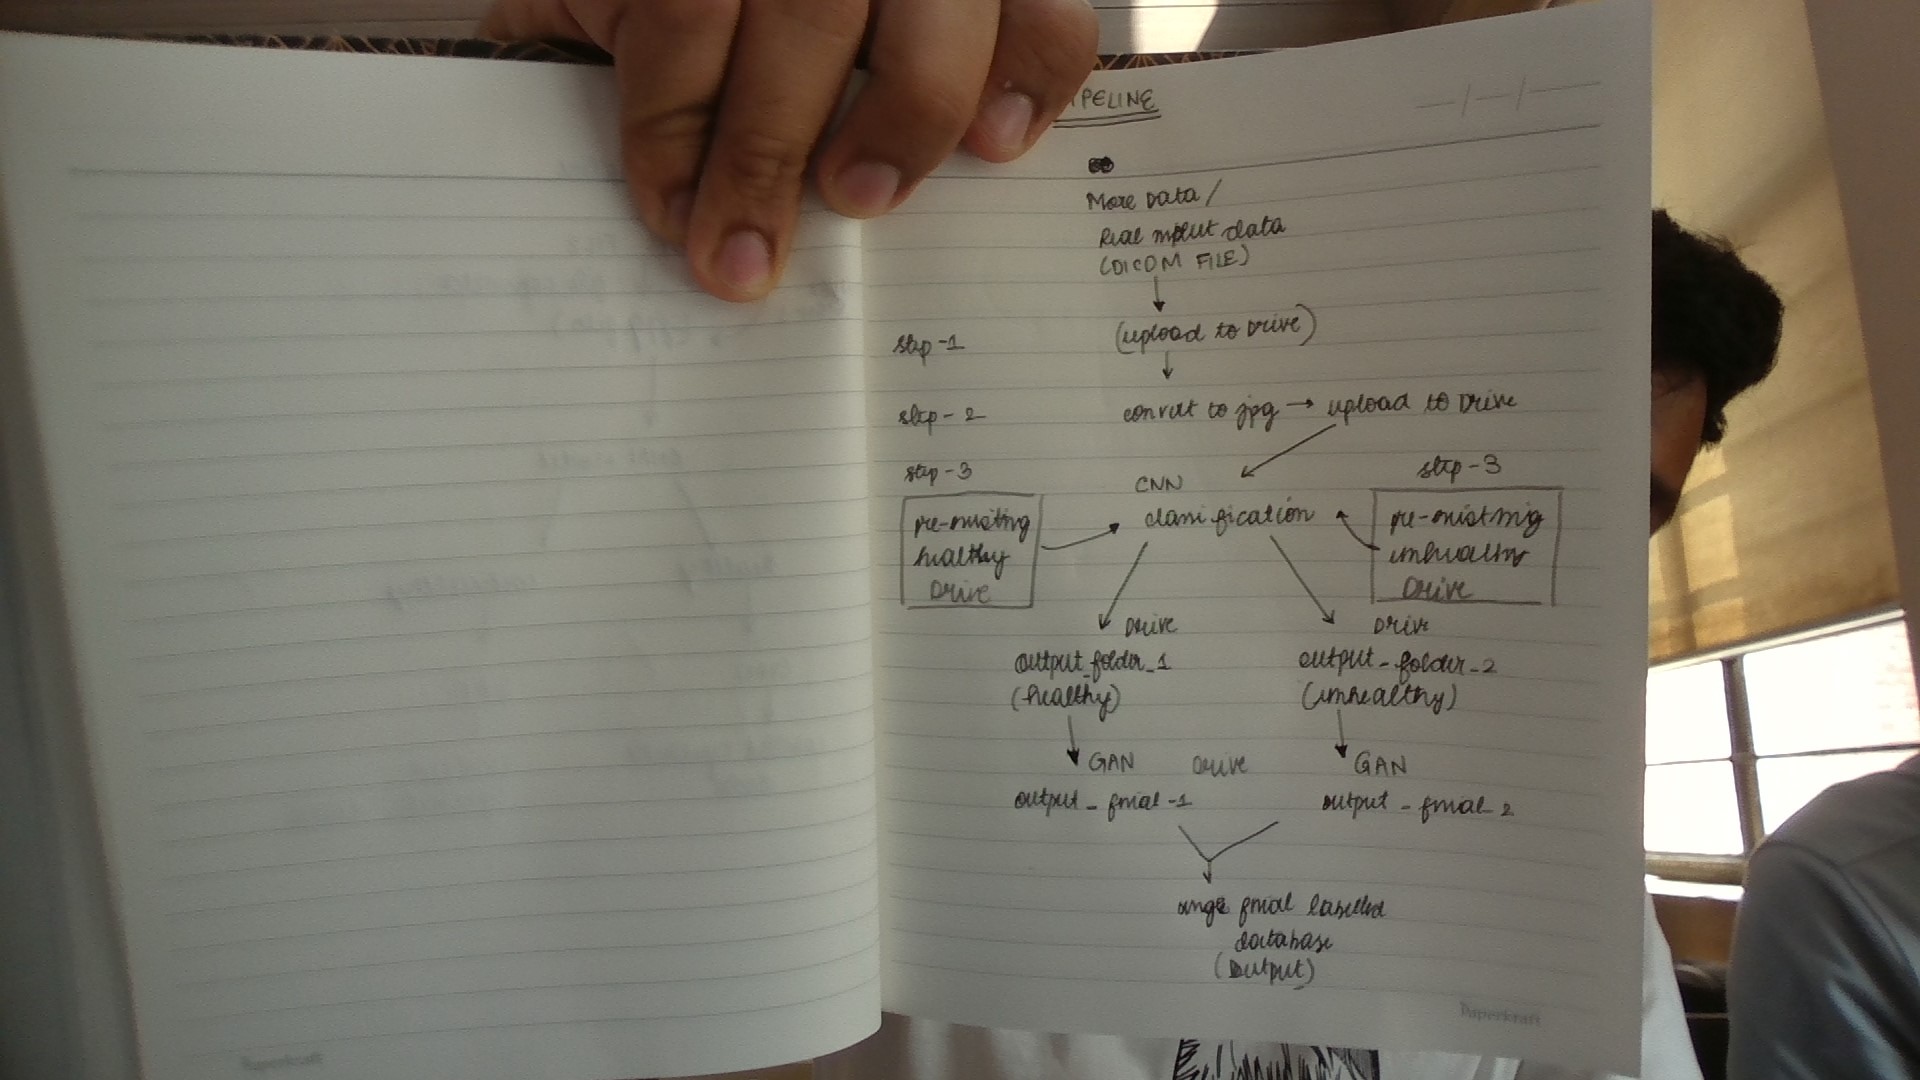 PIPELINE
More Data /
Real input data
(DICOM FILE)
step-1 (upload to Drive)
step-2 convert to jpg → upload to Drive
step-3 step-3
CNN
classification
pre-existing
healthy
Drive
pre-existing
unhealthy
Drive
Drive Drive
output_folder_1 output_folder_2
(healthy) (unhealthy)
GAN Drive GAN
output_final-1 output_final_2
final labelled
database
(Output)
Paperkraft
Paperkraft